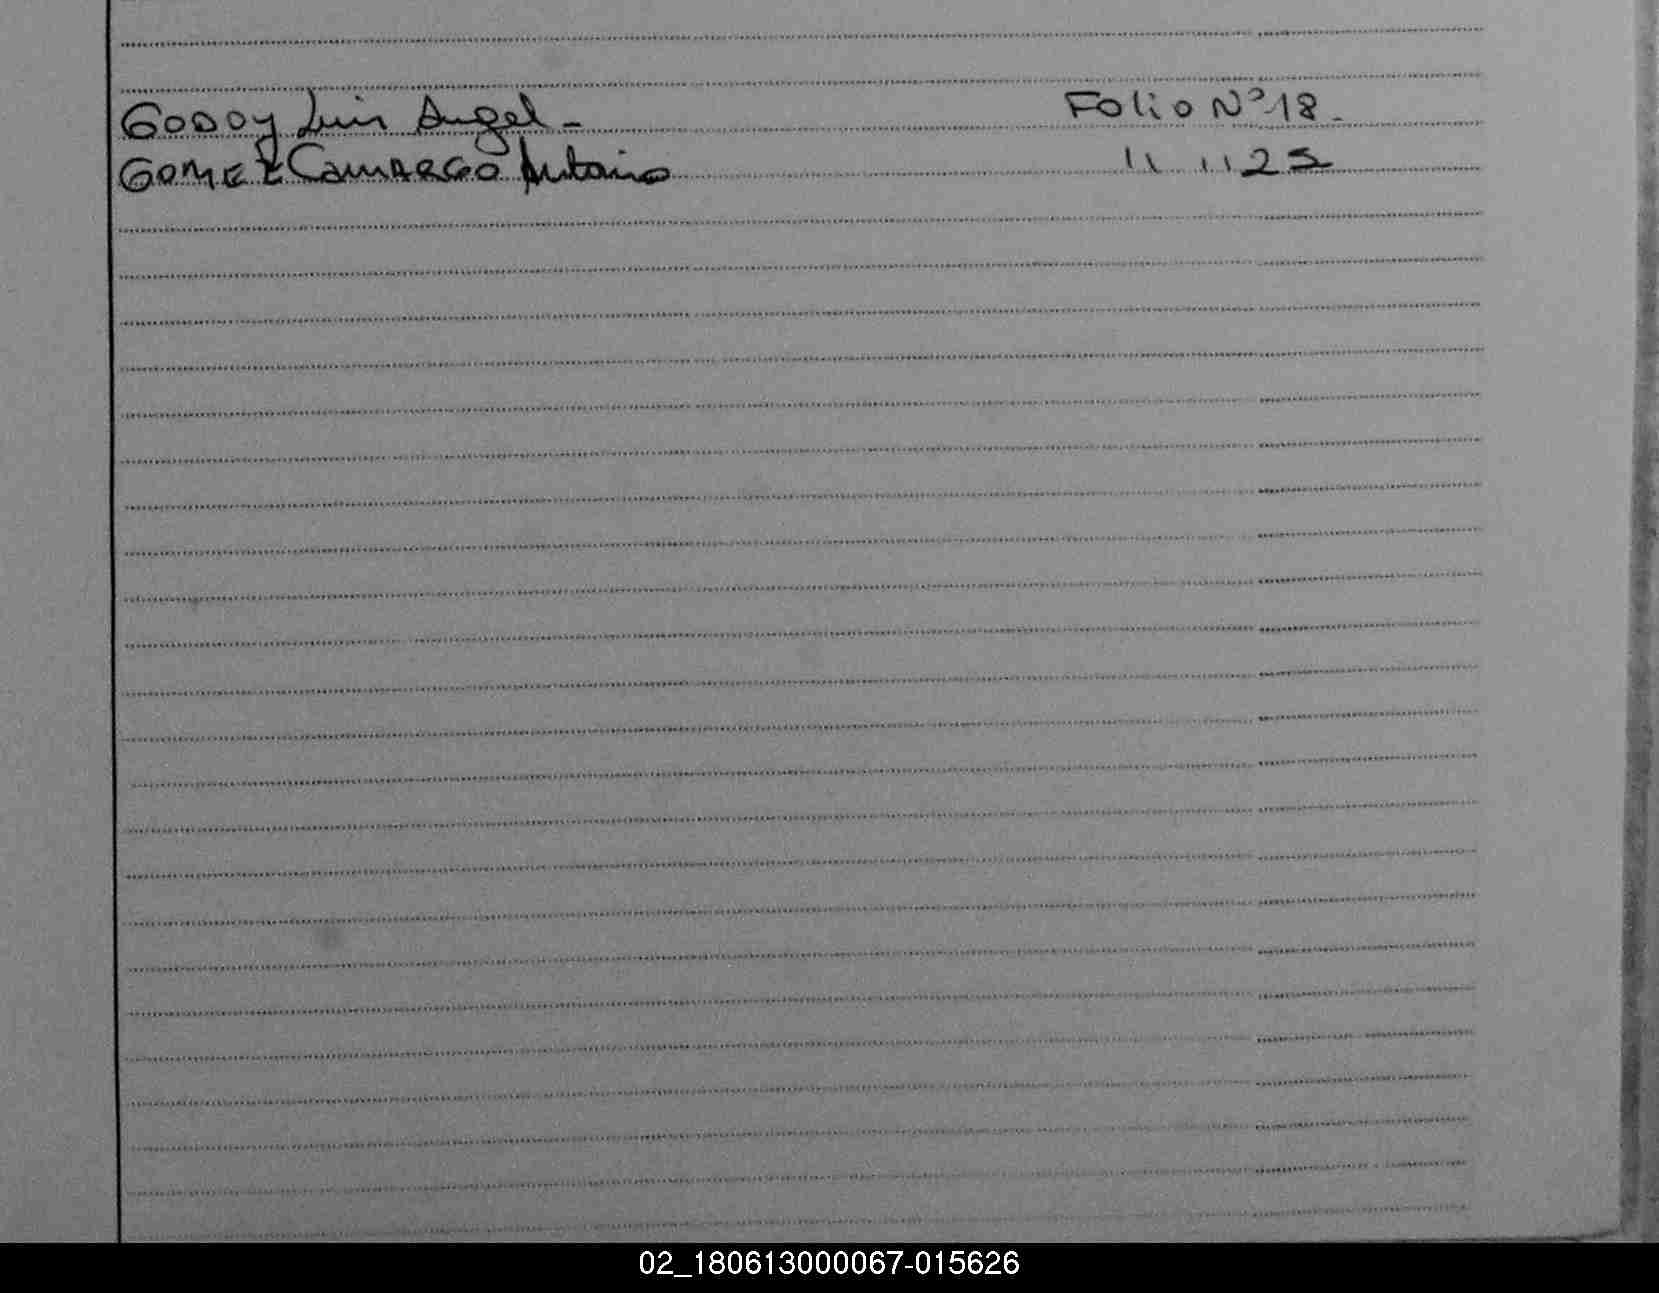 GODOY Luis Angel - Folio N° 18.
GOMEZ CAMARGO Antonio " " 25
02_180613000067-015626